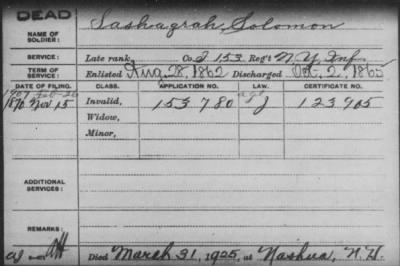 DEAD
NAME OF SOLDIER: Sashagrah, Solomon
SERVICE: Late rank, Co. I 153 Reg't N.Y. Inf.
TERM OF SERVICE: Enlisted Aug. 28, 1862 Discharged Oct. 2, 1865
DATE OF FILING. CLASS. APPLICATION NO. LAW. CERTIFICATE NO.
1907 Feb 26
1890 Nov 15 Invalid, 153780 J 123905
Widow,
Minor,
ADDITIONAL SERVICES:
REMARKS:
Died March 31, 1925, at Nashua, N.H.